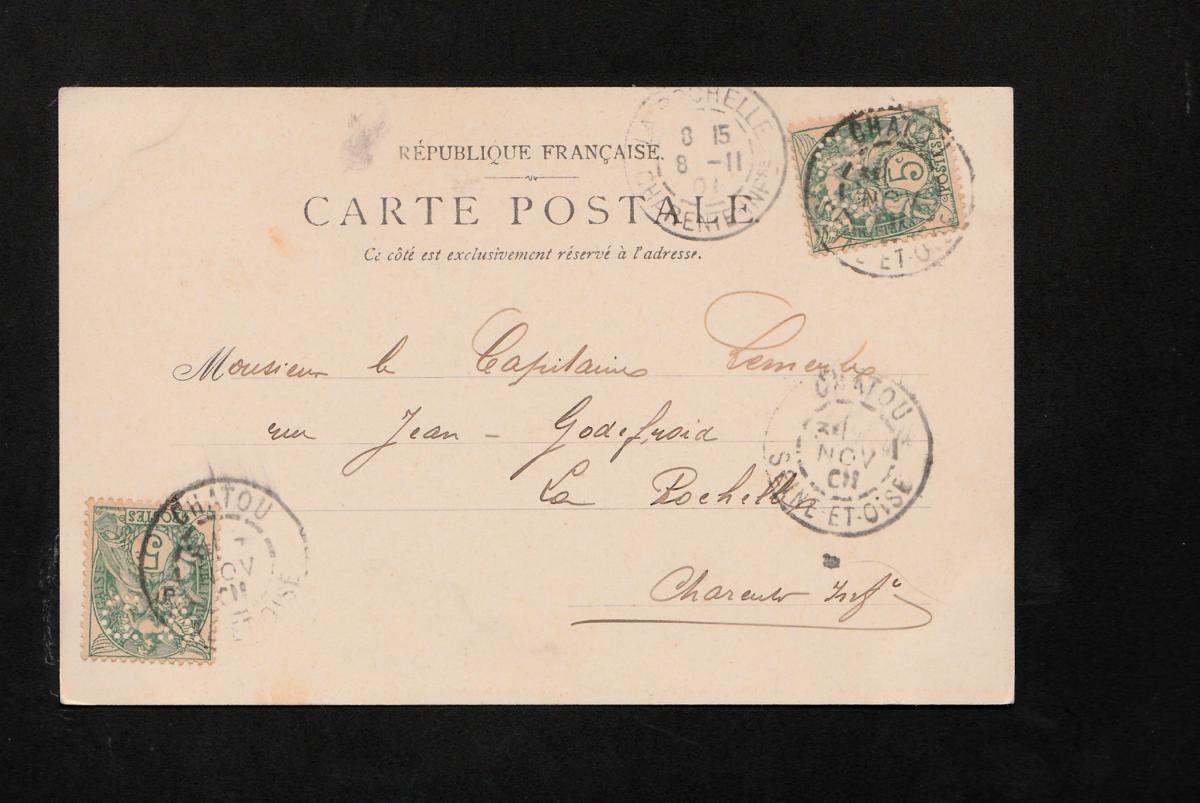 RÉPUBLIQUE FRANÇAISE.
CARTE POSTALE
Ce côté est exclusivement réservé à l'adresse.
LA ROCHELLE
8 15
8 -11
01
CHARENTE-INFRE
5c
POSTES
ET-OISE
Monsieur le Capitaine
rue Jean - Godefroid
La Rochelle
Charente Infre
CHATOU
NOV
01
SEINE-ET-OISE
CHATOU
POSTES
5
OISE